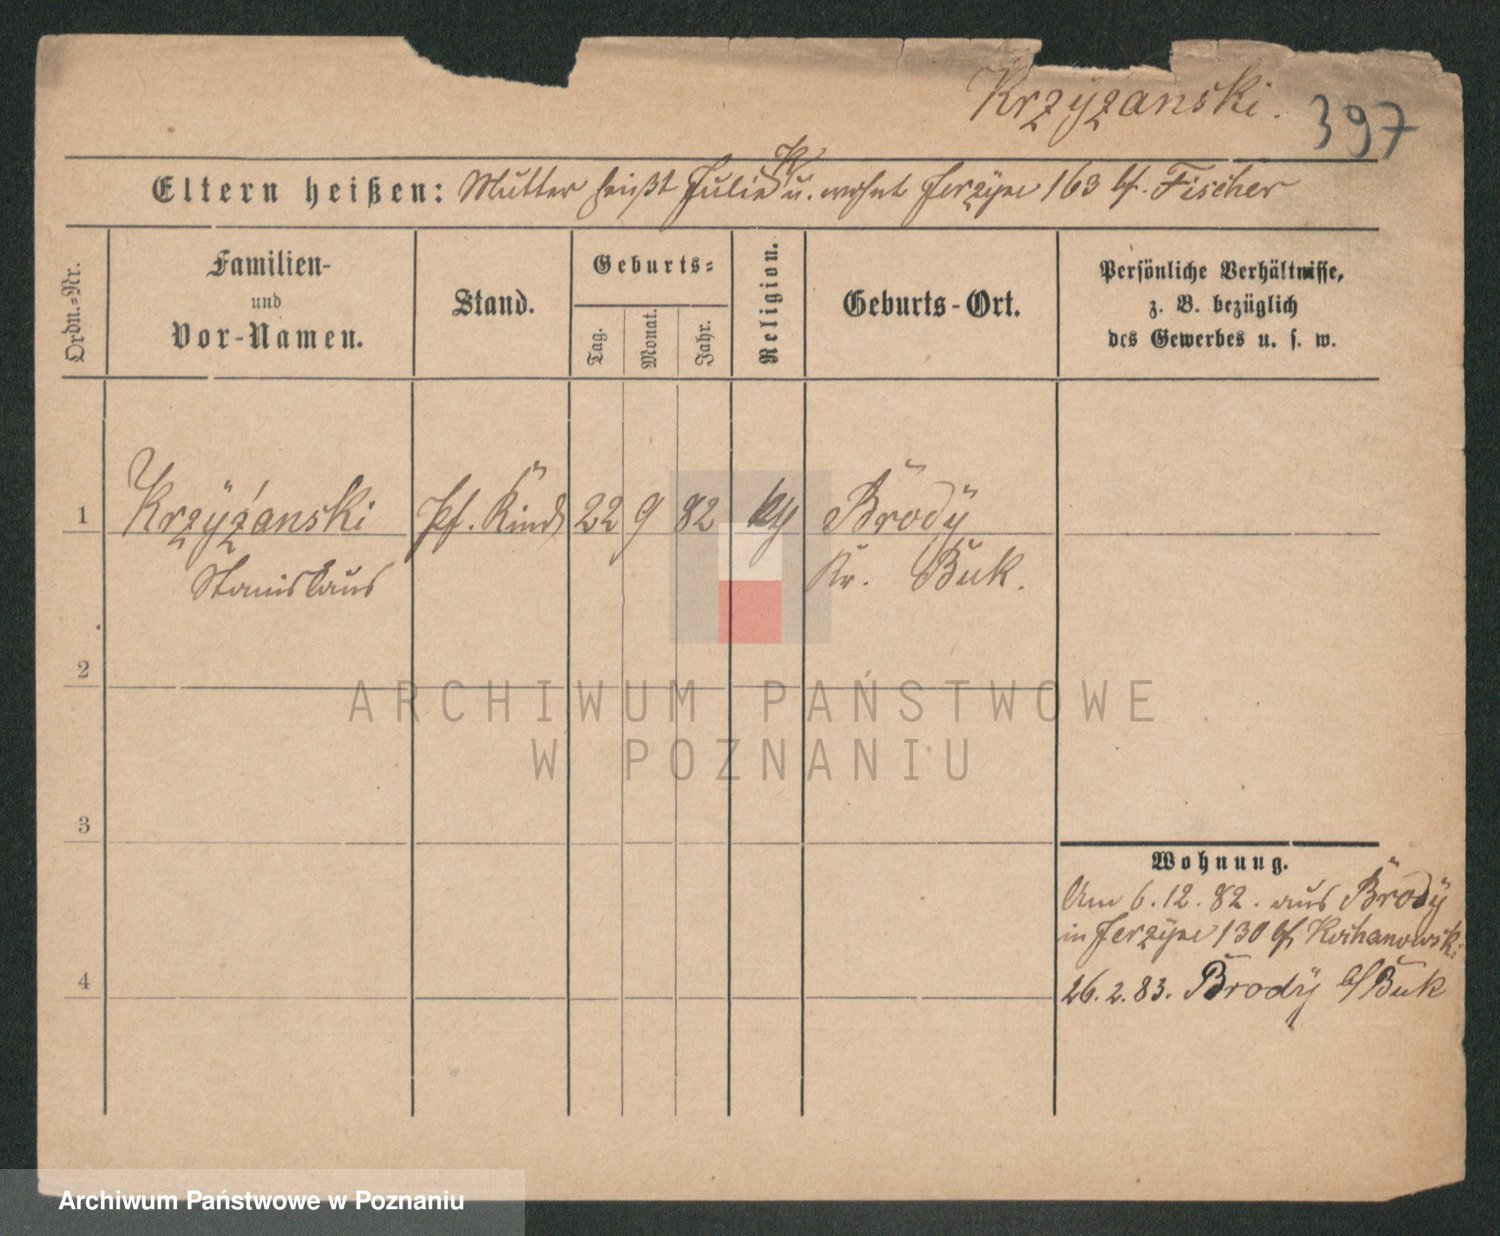 Krzyżanski. 397
Eltern heißen: Mutter heißt Julie K u. wohnt Jerzyce 163 bf. Fischer
Ordn.-Nr.
Familien-
und
Vor-Namen.
Stand.
Geburts-
Tag.
Monat.
Jahr.
Religion.
Geburts-Ort.
Persönliche Verhältnisse,
z. B. bezüglich
des Gewerbes u. s. w.
1 Krzyżanski Pf. Kind 22 9 82 Brody
Stanislaus Kr. Buk.
2
3
Wohnung.
Am 6.12.82. aus Brody
in Jerzyce 130 bf
4
26.2.83. Brody b/Buk
ARCHIWUM PAŃSTWOWE
W POZNANIU
Archiwum Państwowe w Poznaniu